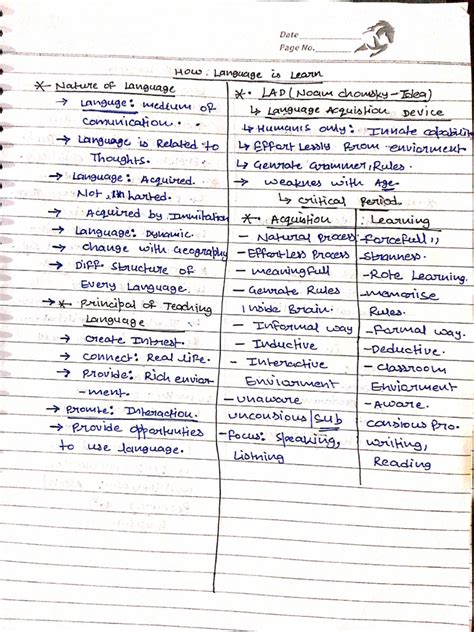 Date
Page No.
How Language is Learn
* Nature of Language
→ Language: medium of
Comunication.
→ Language is Related to
Thoughts.
→ Language: Acquired.
Not, harted.
Acquired by Immitation
→ Language: Dynamic.
→ change with Geography
→ Diff. Structure of
Every Language.
→ * Principal of Teaching
Language
→ Create Interest.
→ Connect: Real life.
→ Provide: Rich envior
-ment.
→ Promte: Interaction.
→ Provide opportunities
to use language.
* . LAD (Noam chomsky - Idea)
↳ Language Acquistion Device
↳ Humanis only: Innate capability
↳ Effortlessly from enviorment
↳ Genrate Grammer, Rules.
→ weakness with Age.
↳ critical Period.
* Acquistion | Learning
- Natural Process - Forcefull
- Effortless Process - Strainness.
- meaningfull - Rote Learning.
- Genrate Rules - memorise
Inside Brain. Rules.
- Informal way - Formal way.
- Inductive - Deductive.
- Interactive - classroom
Enviarment Enviorment
- unaware - Aware.
unconsious | Sub consious Pro.
- Focus: Speaking, writing,
Listning Reading